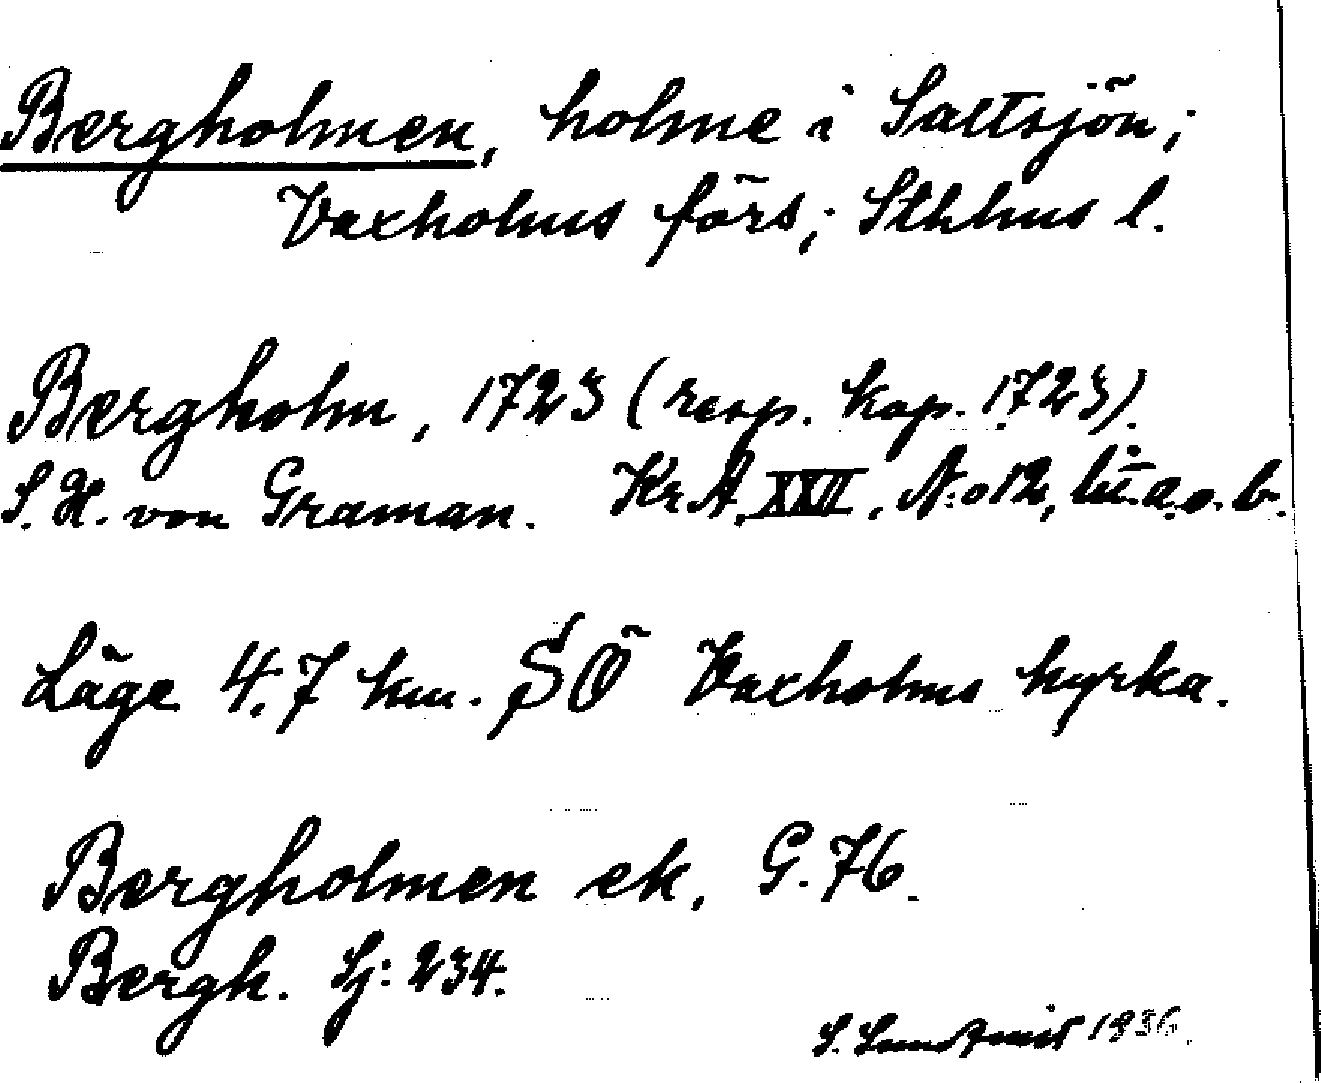 Bergholmen, holme i Saltsjön;
Vaxholms förs; Sthlms l.
Bergholm, 1723 (resp. kop. 1723).
S. H. von Graman. Kr. A. XXII, N:o 12, litt. a. o. b.
Läge 4,7 km. SÖ Vaxholms kyrka.
Bergholmen ek. G. 76.
Bergh. Sj: 234.
S. Sundqvist 1936.